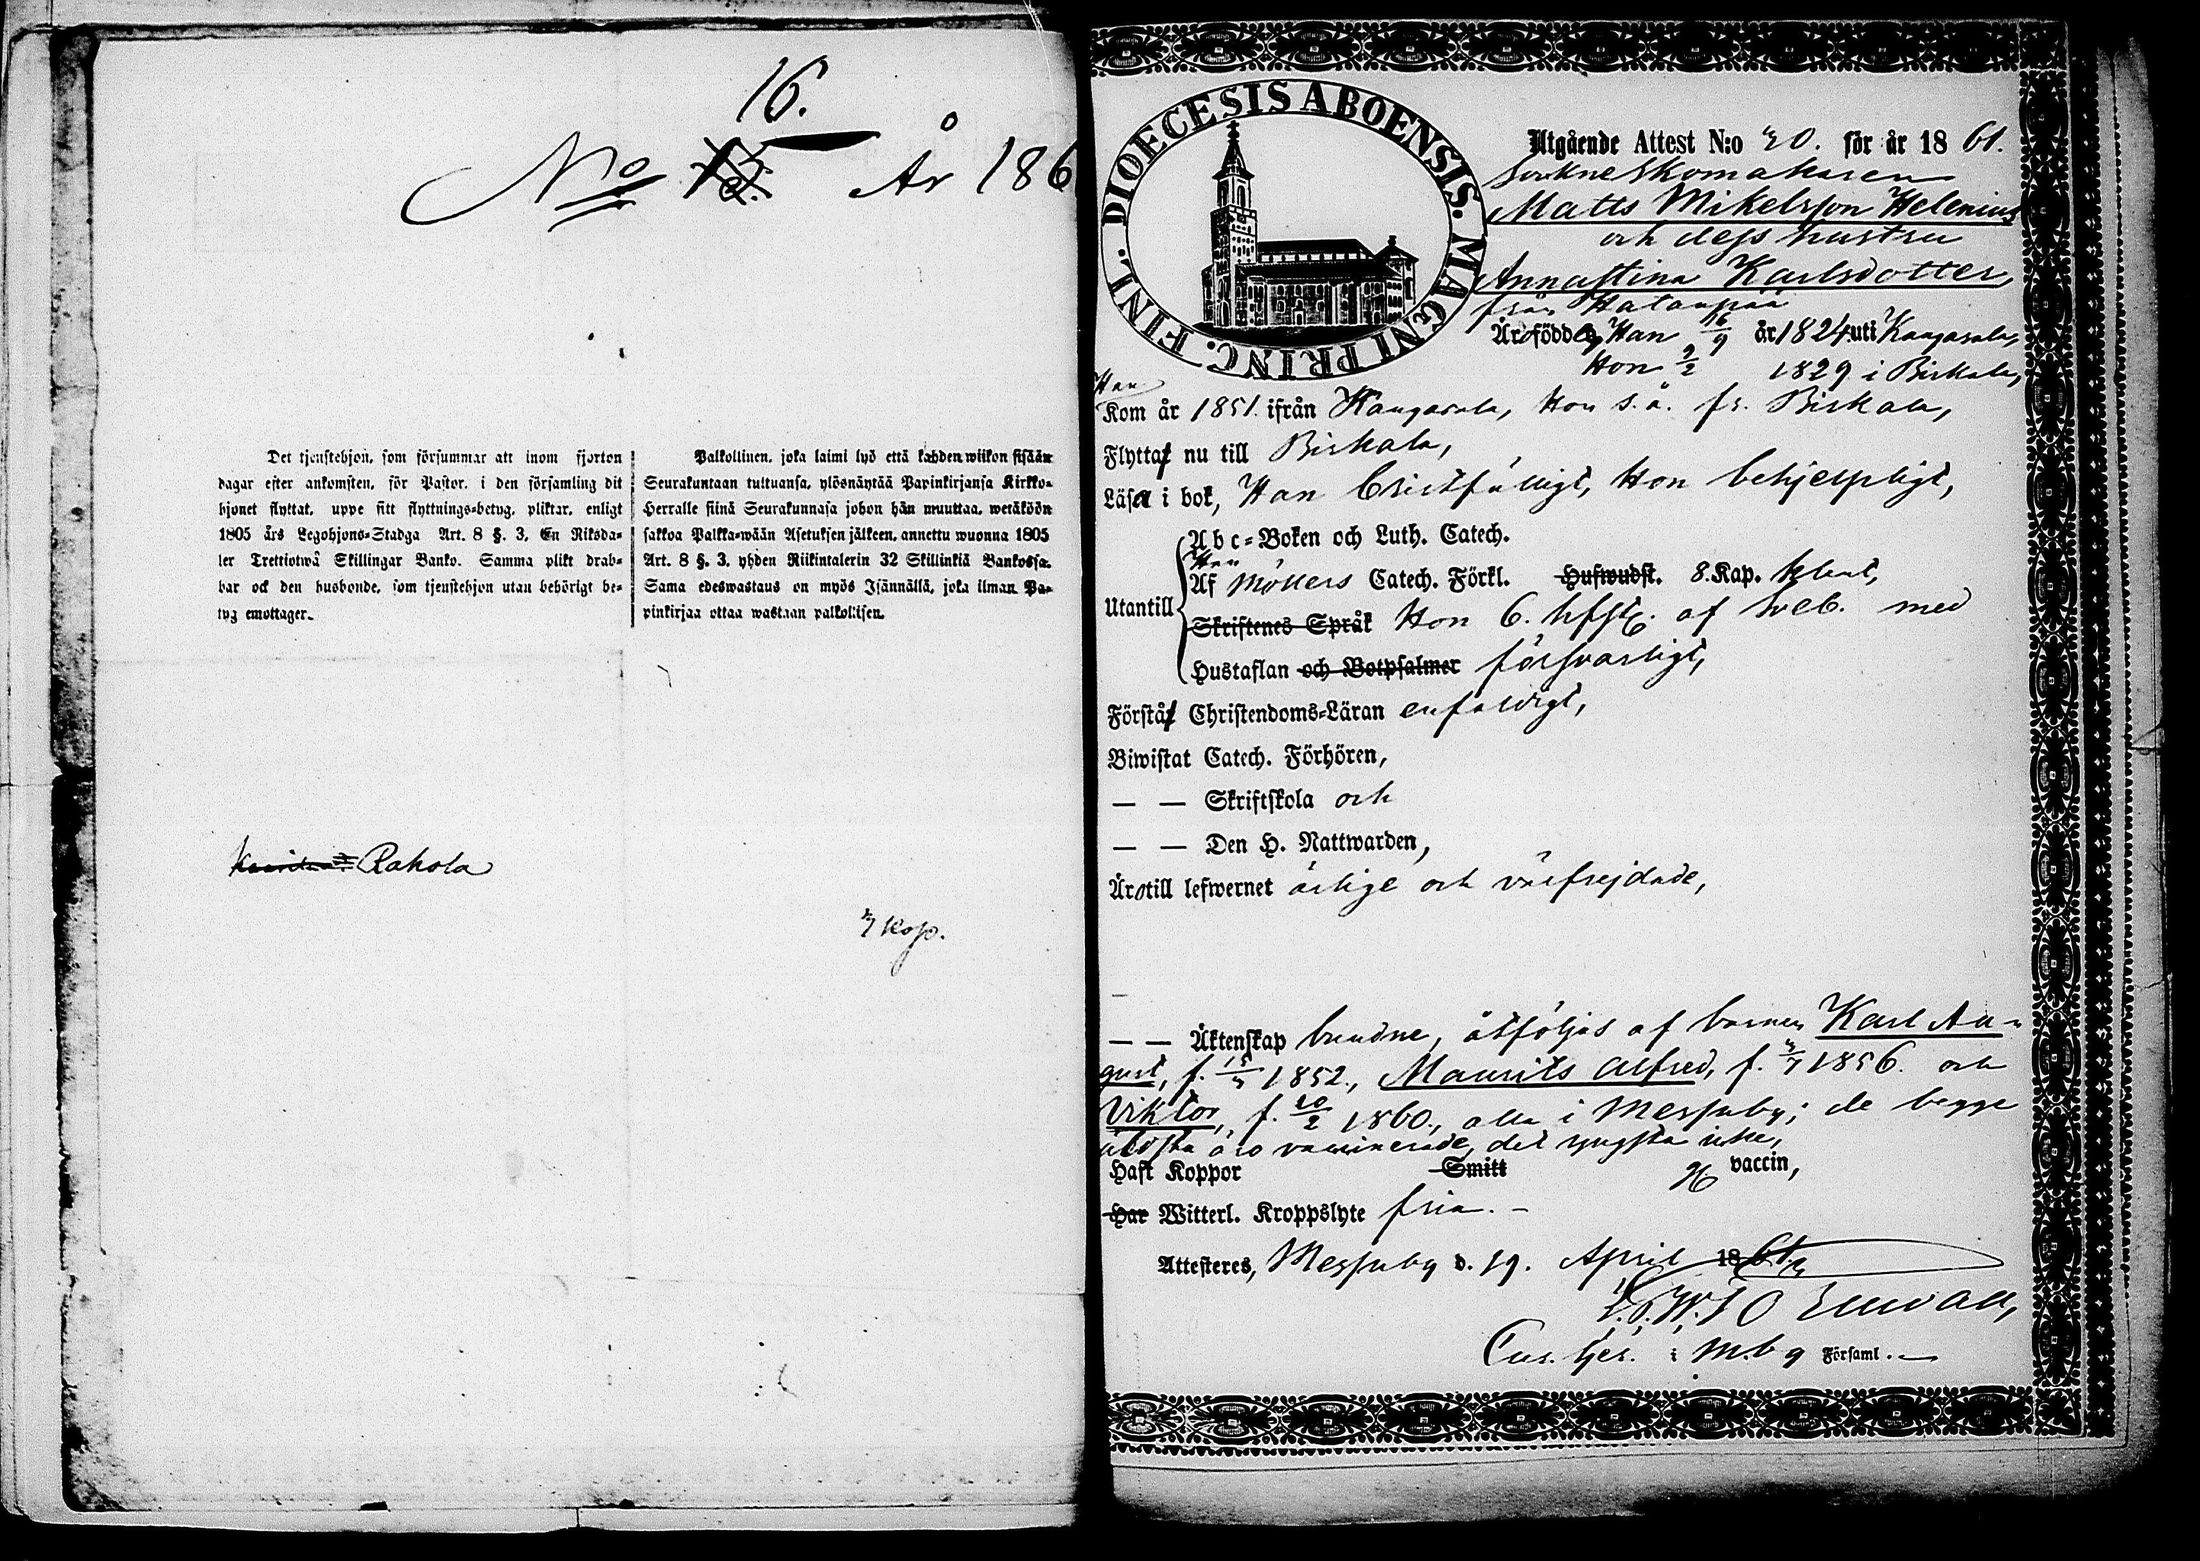 16.
No År 186
Det tjenstehjon, som försummar att inom fjorton
dagar efter ankomsten, för Pastor, i den församling dit
hjonet flyttat, uppe sitt flyttnings-betyg, pliktar, enligt
1805 års Legohjons-Stadga Art. 8 §. 3, En Riksda-
ler Trettiotwå Skillingar Banko. Samma plikt drab-
bar ock den husbonde, som tjenstehjon utan behörigt be-
tyg emottager.
Palkollinen, joka laimi lyö että kahden wiikon sisään
Seurakuntaan tultuansa, ylösnäytää Papinkirjansa Kirkko-
Herralle siinä Seurakunnasa johon hän muuttaa, wetäköön
sakkoa Palkka-wään Asetuksen jälkeen, annettu wuonna 1805
Art. 8 §. 3, yhden Riikintalerin 32 Skillinkiä Bankossa.
Sama edeswastaus on myös Isännällä, joka ilman Pa-
pinkirjaa ottaa wastaan palkollisen.
Rakola
7 Kop.
DIOECESIS ABOENSIS. MAGNI PRINC. FINL.
Utgående Attest N:o 30. för år 1861.
Sockneskomakaren
Matts Mikelsson Helenius
och dess hustru
Annastina Karlsdotter,
från Hatanpää
Äro födde, Han 16/9 år 1824 uti Kangasala,
Hon 9/2 1829 i Birkala,
Han
Kom år 1851. ifrån Kangasala, Hon s.å. fr. Birkala,
Flytta nu till Birkala,
Läsa i bok, Han Christfälligt, Hon behjelpligt,
Abc-Boken och Luth. Catech.
Han
Utantill Af Möllers Catech. Förkl. Hufwudst. 8. Kap. klent,
Skriftenes Språk Hon 6. hfst. af Sveb. med
Hustaflan och Botpsalmer försvarligt,
Förstå Christendoms-Läran enfaldigt,
Biwistat Catech. Förhören,
— — Skriftskola och
— — Den H. Nattwarden,
Äro till lefwernet ärlige och välfrejdade,
— — Äktenskap bundne, åtföljas af barnen Karl Au-
gust, f. 15/3 1852., Maurits Alfred, f. 3/7 1856. och
Viktor, f. 20/2 1860., alla i Messuby; de begge
äldsta äro vaccinerade, det yngsta icke,
Haft Koppor Smitt vaccin,
Har Witterl. Kroppslyte fria. —
Attesteres, Messuby d. 19. April 1861.
Elmvall,
i M.by Församl. —